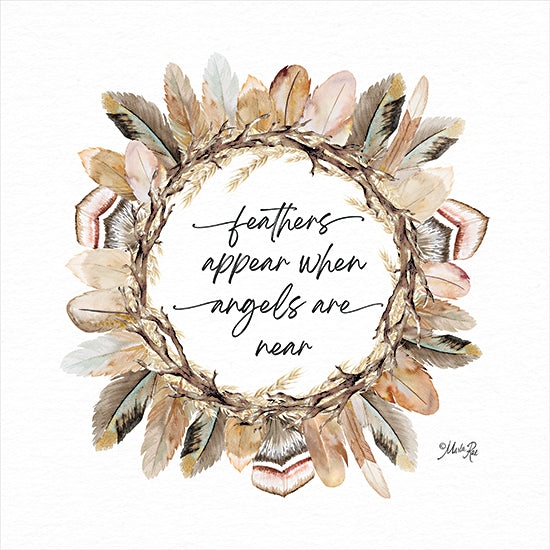 feathers
appear when
angels are
near
©Marla Rae